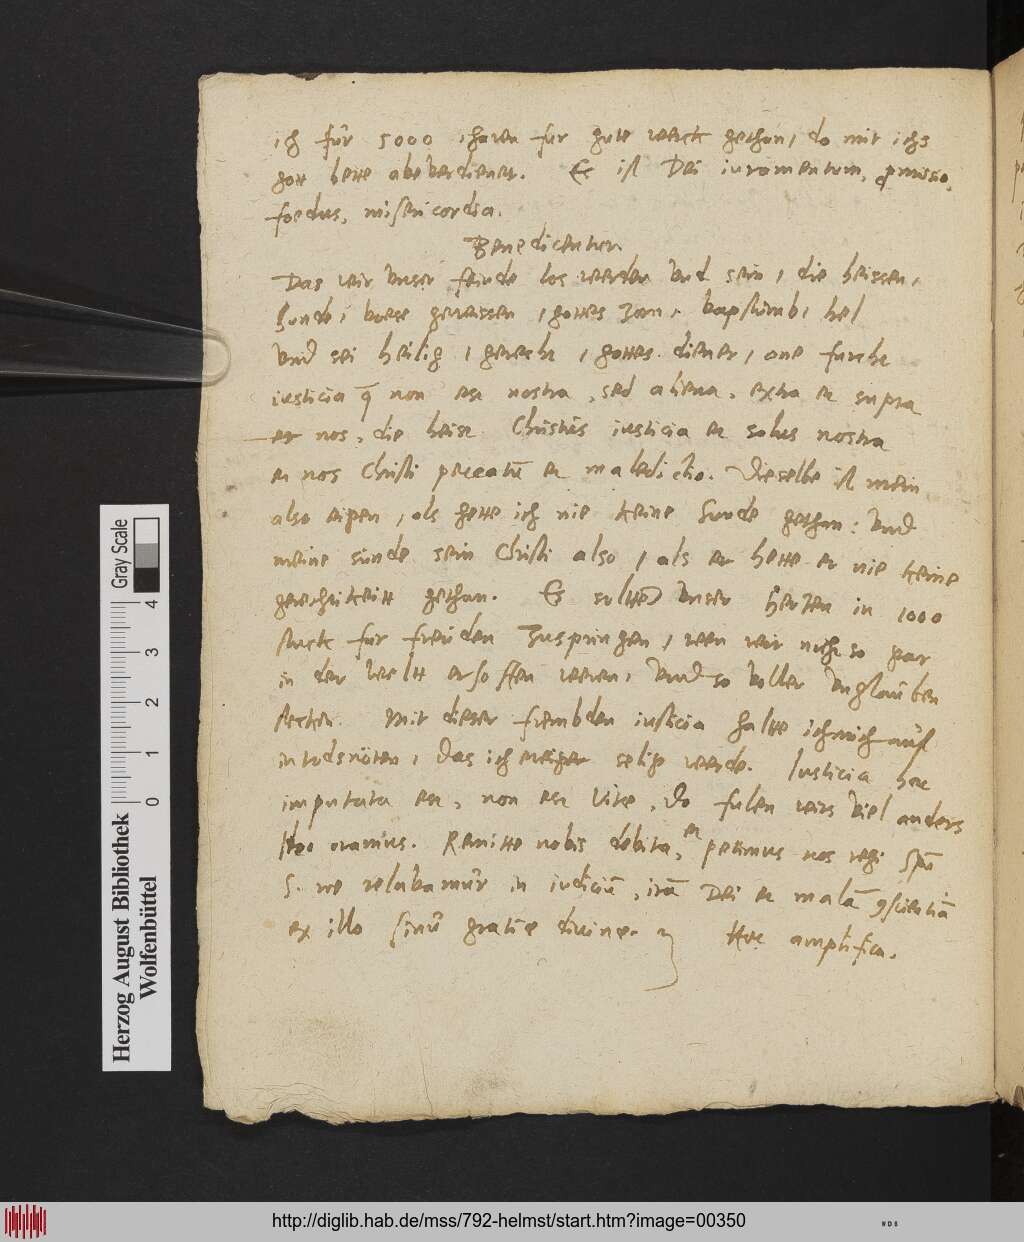 ich für 5000 iharen fur gute werck gethan, do mit ichs
gott hette abeverdienet. Es ist Dei iuramentum, promissio,
foedus, misericordia.
Benedicentur
Das wir unser feinde los werden und sein, die heissen,
Sunde, boese gewissen, gottes zorn, bapstumb, hel
und sei heilig, gerecht, gottes diener, one furcht
iusticia que non est nostra, sed aliena, extra et supra
nos, die heist Christus iusticia et salus nostra
et nos Christi peccatum et maledictio. Dieselbe ist mein
also eigen, als hette ich nie keine Sunde gethan: und
meine sünde sein Christi also, als er hette er nie keine
gerechtikeitt gethan. Es soltten unser Hertzen in 1000
stuck fur freüden zuspringen, wen wir nicht so gar
in der weltt ersoffen weren, und so voller unglauben
steckten. Mit dieser frembden iusticia haltte ich mich auff
in todsnöten, das ich ewiger selig werde. Iusticia hec
imputata est, non est vite, do fulen wirs viel anders
Ideo oramus. Remitte nobis debita, et petimus nos regi Spū
S. ne relabamur in iudiciū, irā Dei et malā conscientiā
ex illo sinu gratie divine. Hec amplifica.
Herzog August Bibliothek
Wolfenbüttel
0 1 2 3 4
Gray Scale
http://diglib.hab.de/mss/792-helmst/start.htm?image=00350
WDB